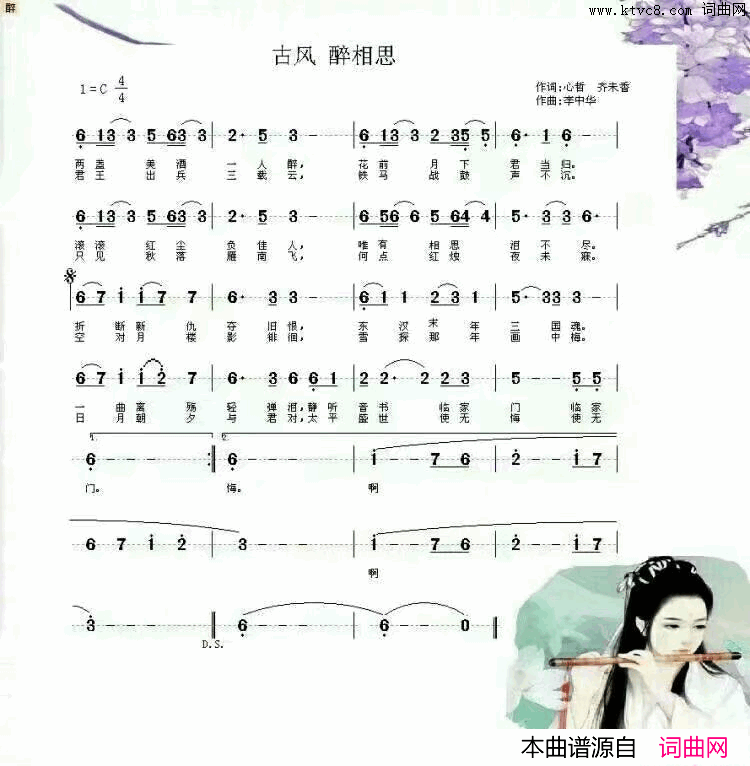 醉
www.ktvc8.com 词曲网
古风 醉相思
1=C 4/4
作词:心哲 齐未香
作曲:李中华
6 13 3 5 63 3 | 2· 5 3 - | 6 13 3 2 35 5 | 6· 1 6 - |
两盏 美酒 一人醉, 花前 月下 君当归。
君王 出兵 三载云, 铁马 战鼓 声不沉。
6 13 3 5 63 3 | 2· 5 3 - | 6 56 6 5 64 4 | 5· 3 3 6· |
滚滚 红尘 负佳人, 唯有 相思 泪不尽。
只见 秋落 雁南飞, 何点 红烛 夜未寐。
6 7 i i 7 7 | 6· 3 3 - | 6 1 1 2 3 1 | 5· 33 3 - |
折断新仇夺旧恨, 东汉末年三国魂。
空对月楼影徘徊, 雪探那年画中梅。
6 7 i i 2 7 | 6· 3 3 6 1 | 2 2· 2 3 2 1 | 5 - - 5 5 |
一曲离殇轻弹泪,静听 音书临家门临家
日月朝夕与君对,太平 盛世使无悔使无
1. 2.
6 - - - :| 6 - - - | i - - 7 6 | 2 - - i 7 |
门。 悔。 啊
6 7 i 2 | 3 - - - | i - - 7 6 | 2 - - i 7 |
啊
3 - - - || 6 - - - | 6 - - 0 ||
D.S.
本曲谱源自 词曲网